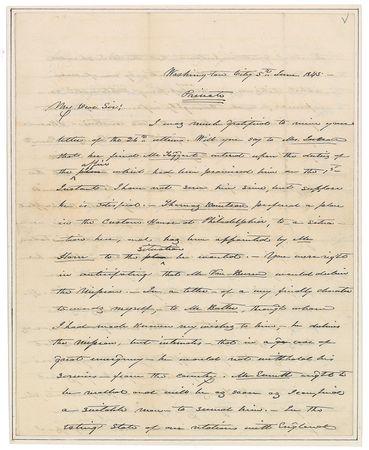 Washington City 5th June 1845 -
Private
My Dear Sir;
I was much gratified to receive your
letter of the 24th ultimo. Will you say to Mrs.
that her friend Mr entered upon the duties of
office
the which had been promised him on the 1st
Instant. I have not seen him since but suppose
he is Thomas preferred a place
in the Custom House at Philadelphia, to a situa
tion here, and has been appointed by Mr
situation
Horn to the place he wanted. - You were right
in anticipating that Mr Van Buren would decline
the Mission. - In a letter - of a very friendly character
to myself, to Mr Butler, through whom
I had made known my wishes to him, - he declines
the Mission, but intimates - that in a case of
great emergency - he would not withhold his
services - from the country. Mr Everett ought to
be recalled and will be as soon as I can find
a suitable man to succeed him. - In the
existing State of our relations with England